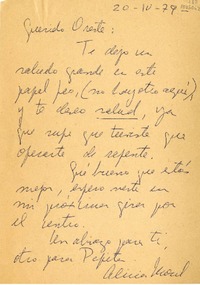 20-IV-79
Querido Oreste:
Te dejo un
saludo grande en este
papel feo, (no hay otro aquí)
y te deseo salud, ya
que supe que tuviste que
operarte de repente.
Qué bueno que estás
mejor, espero verte en
mi próxima gira por
el centro.
Un abrazo para ti,
otro para Pepita.
Alicia Morel